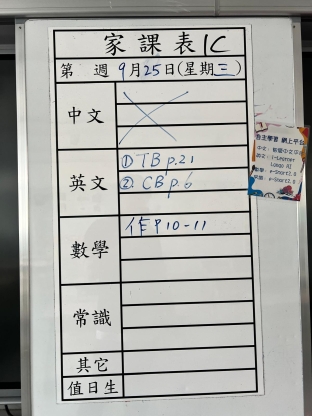 家課表 1C
第 週 9月25日(星期三)
中文
英文
① TB p.21
② CB p.6
數學
作 P10-11
常識
其它
值日生
自主學習 網上平台
i-Learner